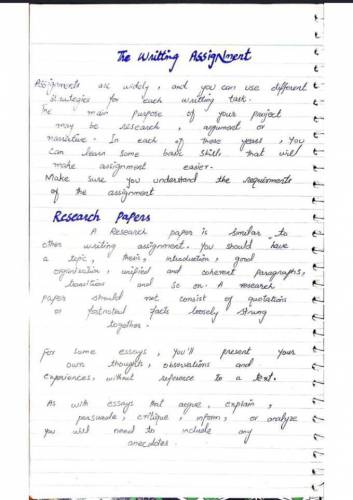 The Writting Assignment
Assignments are widely, and you can use different
strategies for each writting task.
The main purpose of your project
may be research, argument or
narrative. In each of these years, You
Can learn some basic skills that will
make assignment easier.
Make Sure you understand the requirements
of the assignment
Research Papers
A Research paper is similar to
other writing assignment. You should have
a topic, thesis, introduction, good
organization, unified and coherent paragraphs,
transitions and so on. A research
paper should not consist of quotations
or footnoted facts loosely strung
together.
For some essays, you'll present your
own thoughts, observations and
experiences, without reference to a text.
As with essays that argue, explain,
persuade, critique, inform, or analyze
you will need to include any
anecdotes.